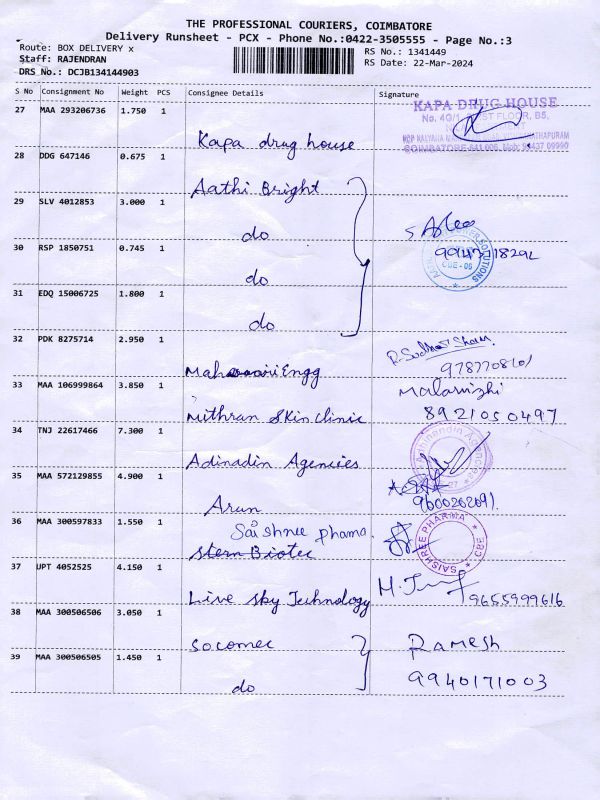 THE PROFESSIONAL COURIERS, COIMBATORE
Delivery Runsheet - PCX - Phone No.:0422-3505555 - Page No.:3
Route: BOX DELIVERY x
Staff: RAJENDRAN
DRS No.: DCJB134144903
RS No.: 1341449
RS Date: 22-Mar-2024
S No Consignment No Weight PCS Consignee Details Signature
27 MAA 293206736 1.750 1 Kapa drug house
KAPA DRUG HOUSE
28 DDG 647146 0.675 1 Aathi Bright
29 SLV 4012853 3.000 1 do
30 RSP 1850751 0.745 1 do
31 EDQ 15006725 1.800 1 do
32 PDK 8275714 2.950 1 Engg
33 MAA 106999864 3.850 1 Mithran Skin clinic
8921050497
34 TNJ 22617466 7.300 1 Adinadin Agencies
35 MAA 572129855 4.900 1 Arun
9600202691
36 MAA 300597833 1.550 1 Sai Shnee phama
Stern Biotec
SAISHREE PHARMA CBE
37 UPT 4052525 4.150 1 Live sky Technology
9655999616
38 MAA 300506506 3.050 1 Socomec Ramesh
39 MAA 300506505 1.450 1 do 9940171003